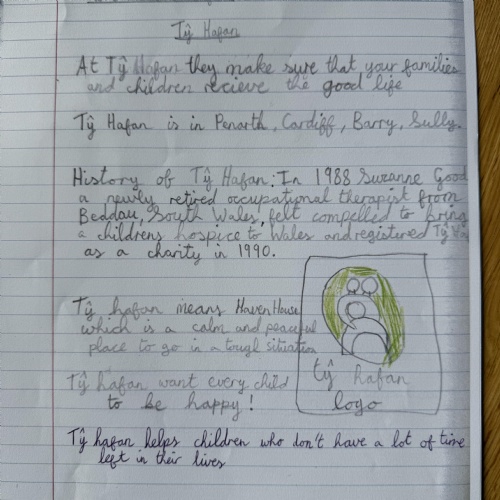 Tŷ Hafan
At Tŷ Hafan they make sure that your families
and children recieve the good life
Tŷ Hafan is in Penarth, Cardiff, Barry, Sully.
History of Tŷ Hafan: In 1988 Suzanne Good
a newly retired occupational therapist from
Beddau, South Wales, felt compelled to bring
a childrens hospice to Wales and registered Tŷ Haf
as a charity in 1990.
Tŷ hafan means Haven House
which is a calm and peaceful
place to go in a tough situation
tŷ hafan
logo
Tŷ hafan want every child
to be happy!
Tŷ hafan helps children who don't have a lot of time
left in their lives